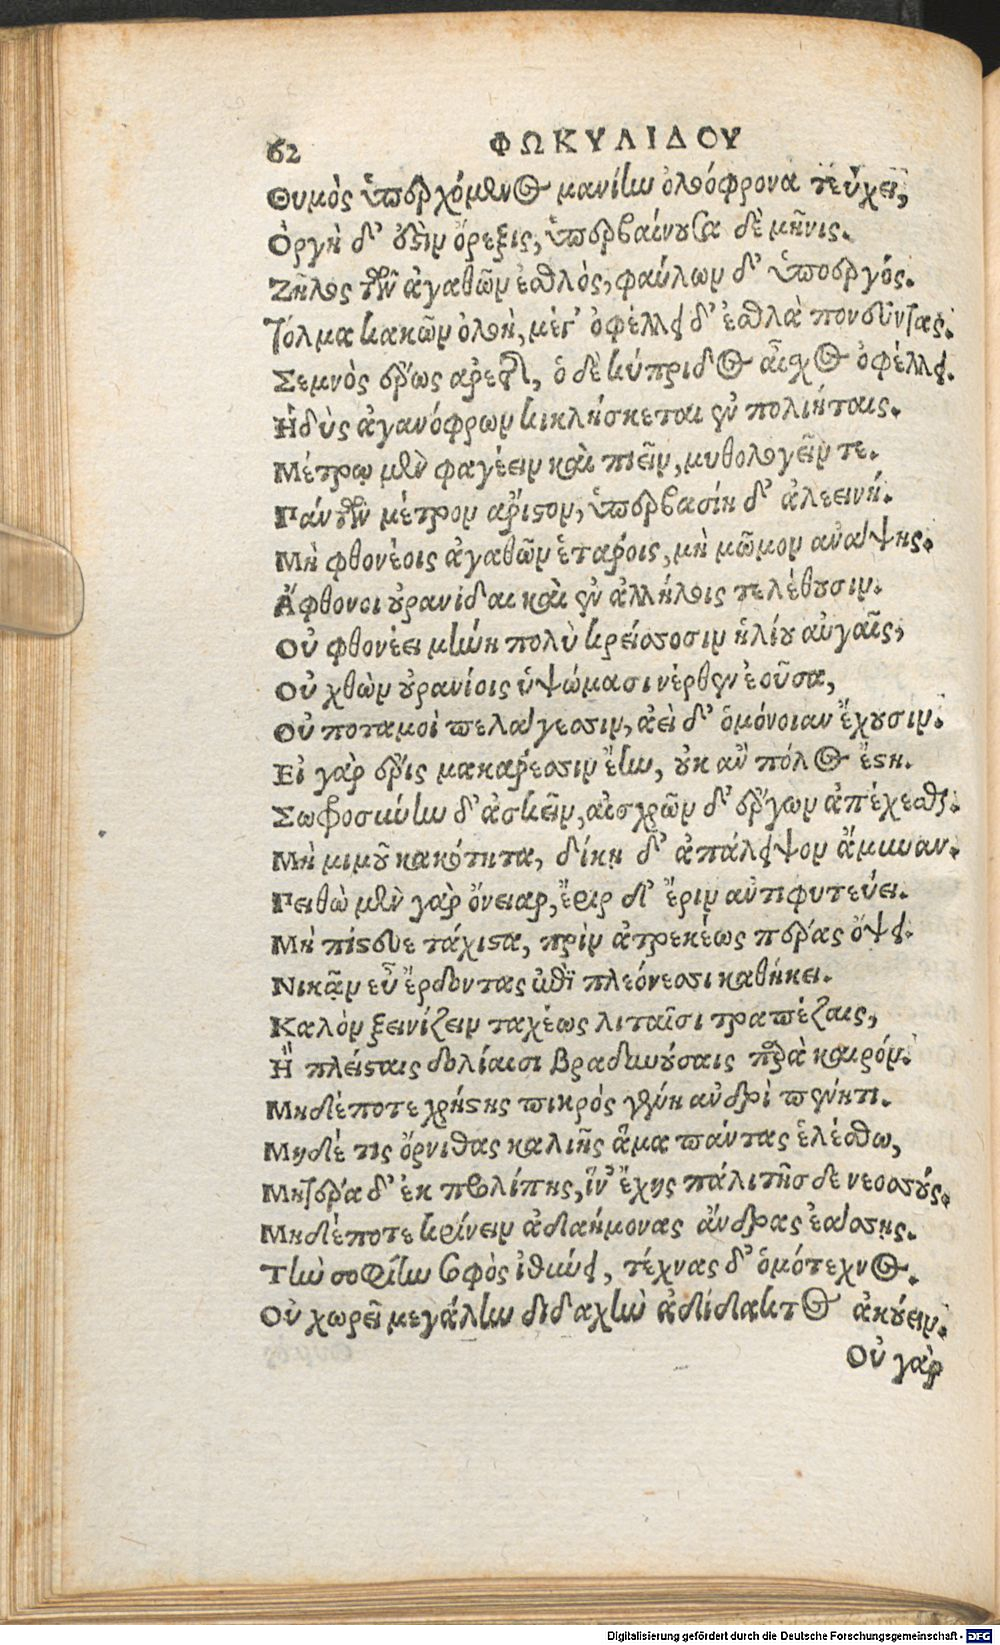 62
ΦΩΚΥΛΙΔΟΥ
Θυμὸς ὑπερχόμενος μανίην ὀλοόφρονα τεύχει,
Ὀργὴ δ' ὅστιν ὄρεξις, ὑπερβαίνουσα δὲ μῆνις.
Ζῆλος τῶν ἀγαθῶν ἐσθλὸς, φαύλων δ' ὑποεργός.
Τόλμα κακῶν ὀλοὴ, μέγ' ὀφέλλει δ' ἐσθλὰ πονεῦντας.
Σεμνὸς ἔρως ἀρετῆς, ὁ δὲ κύπριδος αἶσχος ὀφέλλει.
Ἡδὺς ἀγανόφρων κικλήσκεται ἐν πολιήταις.
Μέτρῳ μὲν φαγέειν καὶ πιεῖν, μυθολογεῖν τε.
Πάντων μέτρον ἄριστον, ὑπερβασίη δ' ἀλεεινή.
Μὴ φθονέοις ἀγαθῶν ἑτάροις, μὴ μῶμον ἀνάψης.
Ἄφθονοι οὐρανίδαι καὶ ἐν ἀλλήλοις τελέθουσιν.
Οὐ φθονέει μήνη πολὺ κρείσσοσιν ἡλίου αὐγαῖς,
Οὐ χθὼν οὐρανίοις ὑψώμασι νέρθεν ἐοῦσα,
Οὐ ποταμοὶ πελάγεσσιν, ἀεὶ δ' ὁμόνοιαν ἔχουσιν.
Εἰ γὰρ ἔρις μακάρεσσιν ἔην, οὐκ ἂν πόλος ἔστη.
Σωφροσύνην δ' ἀσκεῖν, αἰσχρῶν δ' ἔργων ἀπέχεσθαι.
Μὴ μιμοῦ κακότητα, δίκῃ δ' ἀπάλειψον ἄμυναν.
Πειθὼ μὲν γὰρ ὄνειαρ, ἔρις δ' ἔριν ἀντιφυτεύει.
Μὴ πίστευε τάχιστα, πρὶν ἀτρεκέως πέρας ὄψει.
Νικᾷν εὖ ἔρδοντας ἐπὶ πλεόνεσσι καθήκει.
Καλὸν ξεινίζειν ταχέως λιταῖσι τραπέζαις,
Ἢ πλείσταις δολίαισι βραδυνούσαις παρὰ καιρόν.
Μηδέποτε χρήστης πικρὸς γένῃ ἀνδρὶ πένητι.
Μηδέ τις ὄρνιθας καλιῆς ἅμα πάντας ἑλέσθω,
Μητέρα δ' ἐκ προλίπῃς, ἵν' ἔχῃς πάλι τῆσδε νεοσσούς.
Μηδέποτε κρίνειν ἀδαήμονας ἄνδρας ἐάσσῃς.
Τὴν σοφίην σοφὸς ἰθύνει, τέχνας δ' ὁμότεχνος.
Οὐ χωρεῖ μεγάλην διδαχὴν ἀδίδακτος ἀκούειν.
Οὐ γὰρ
Digitalisierung gefördert durch die Deutsche Forschungsgemeinschaft - DFG